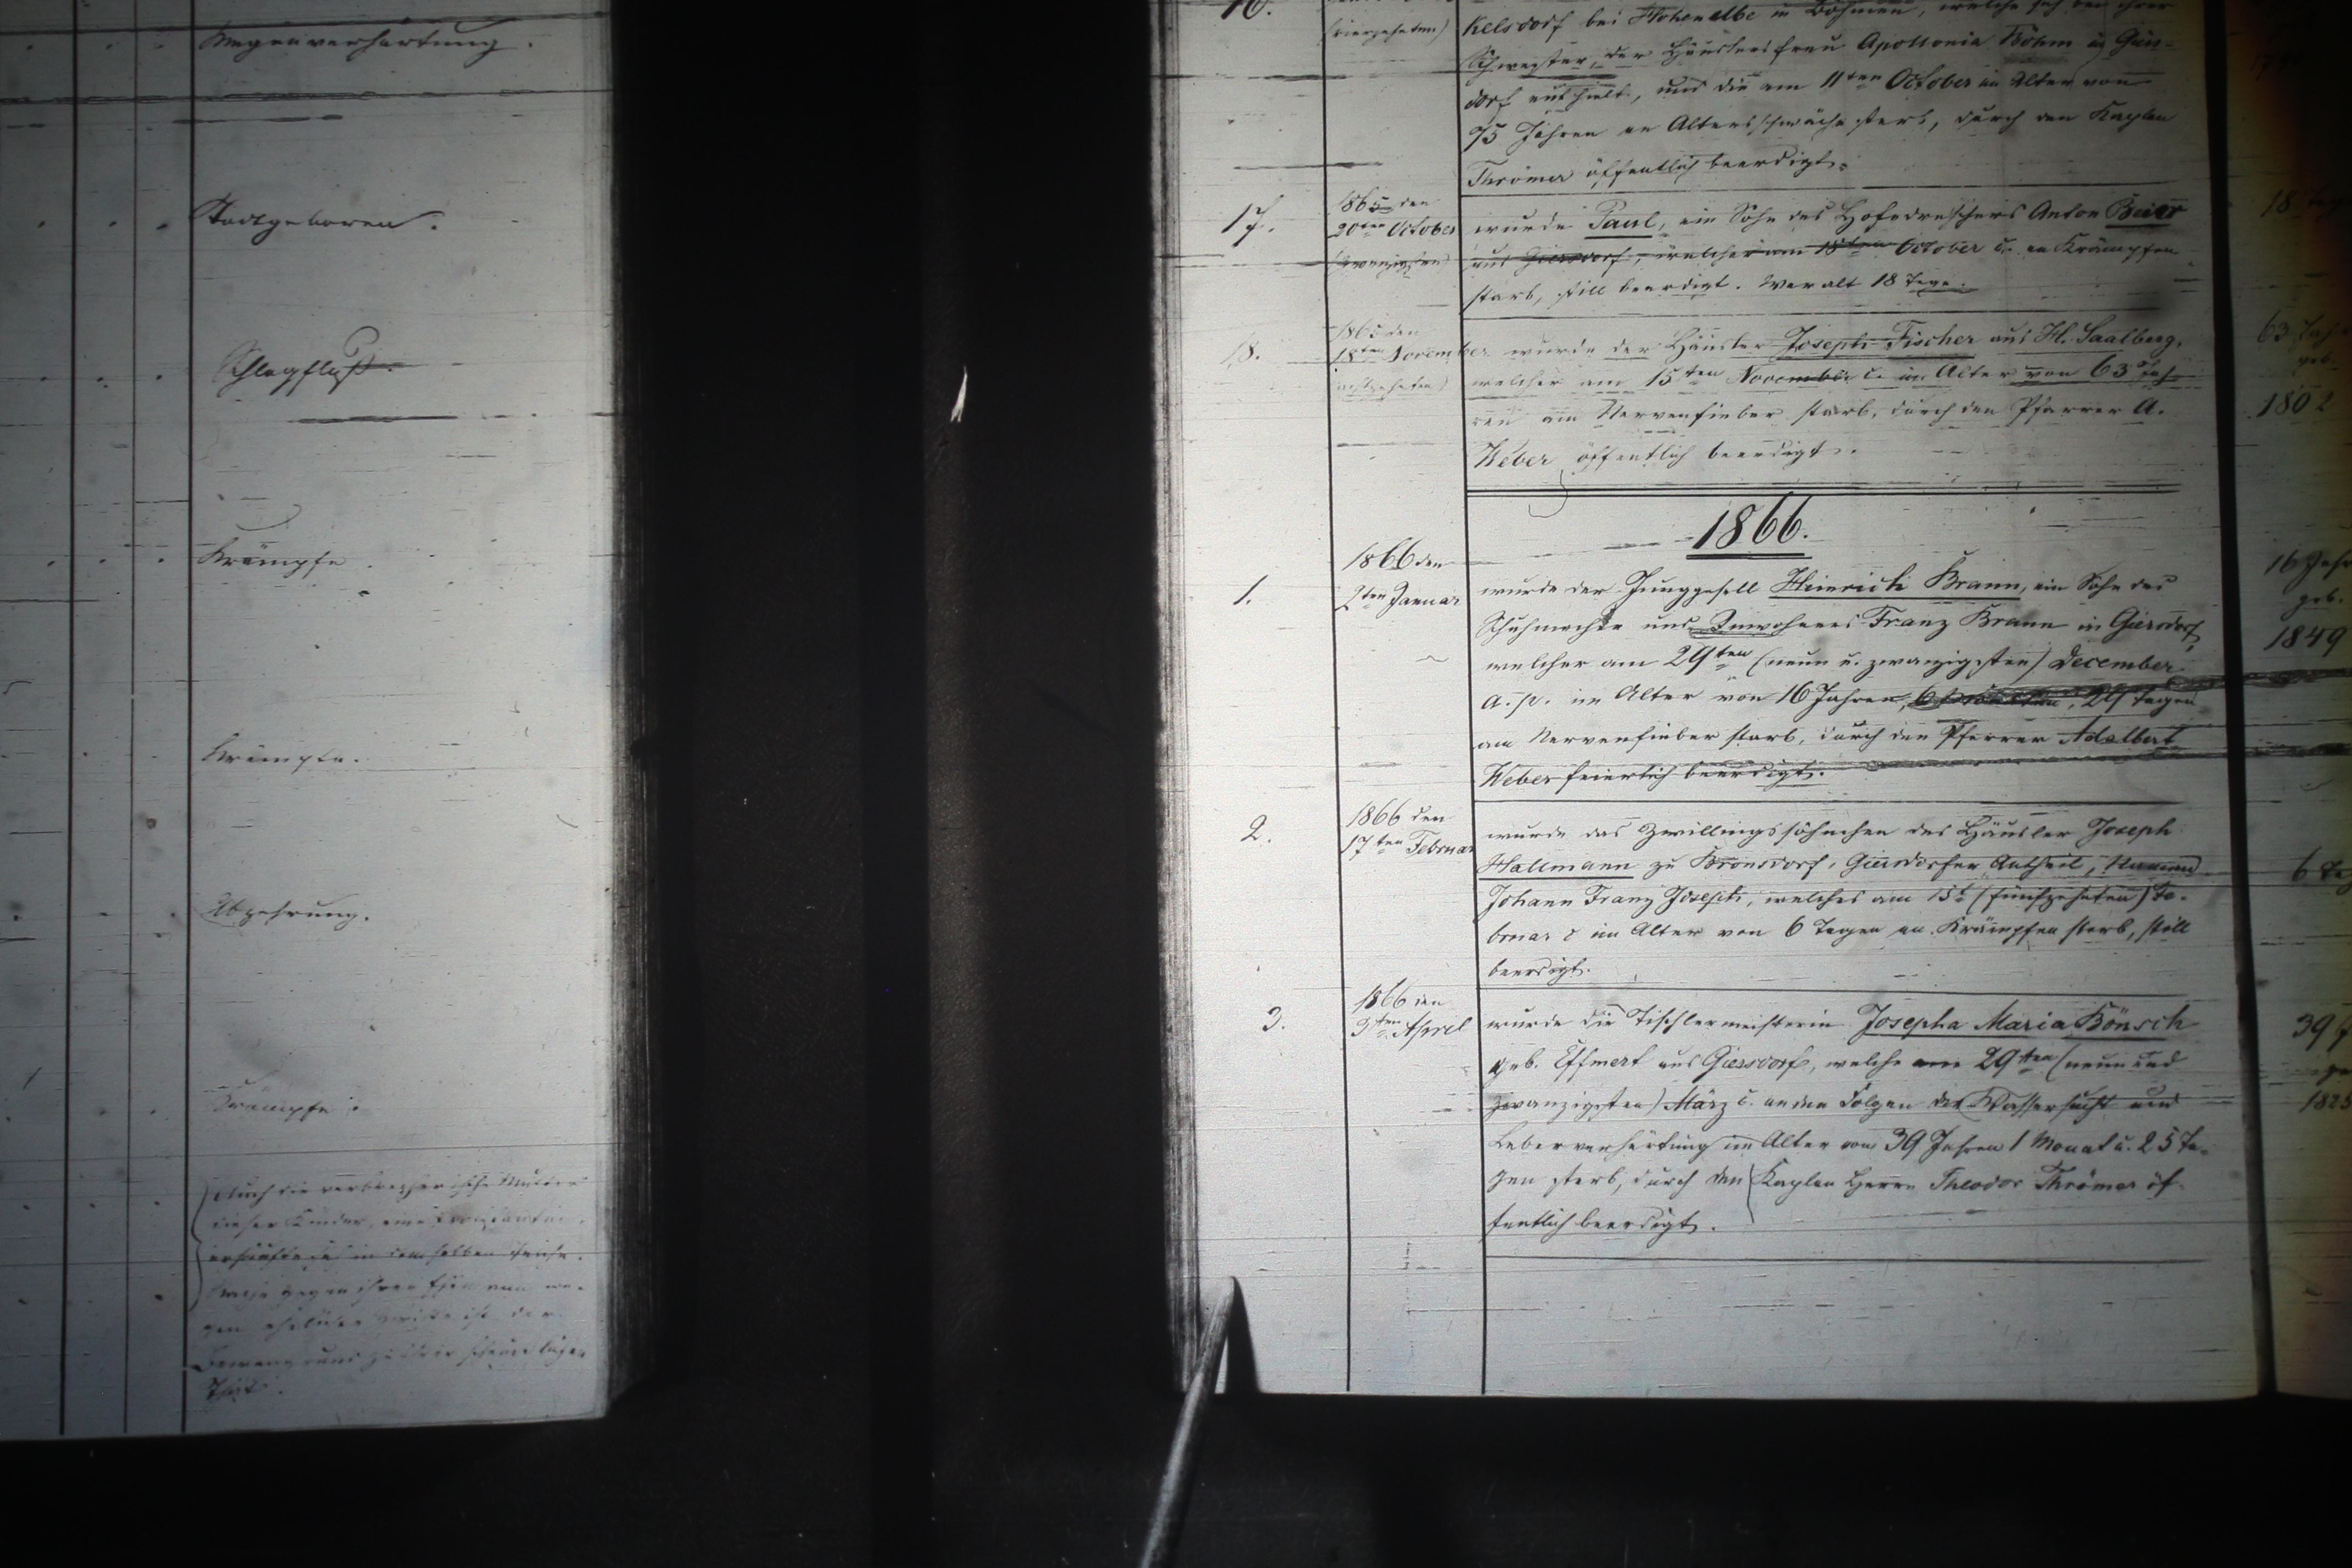 Magenverhärtung.
Todtgeboren.
Schlagfluß.
Krämpfe.
Krämpfe.
Abzehrung.
Krämpfe.
Auch die Mutter
dieser Kinder, eine
in demselben
gegen ihren
That.
16.
(vierzehnten)
kelsdorf bei Hohenelbe in Böhmen, welche sich bei ihrer
Schwester, der Häuslersfrau Apollonia Böhm in Giers-
dorf aufhielt, und die am 11ten October im Alter von
75 Jahren an Altersschwäche starb, durch den Kaplan
Thrömer öffentlich beerdigt.
17.
1865 den
20ten October
(zwanzigsten)
wurde Paul, ein Sohn des Hofedreschers Anton Beier
aus Giersdorf, welcher am 18ten October c. an Krämpfen
starb, still beerdigt. War alt 18 Tage.
18.
1865 den
18ten November
(achtzehnten)
wurde der Häusler Joseph Fischer aus H. Saalberg,
welcher am 15ten November c. im Alter von 63 Jah-
ren am Nervenfieber starb, durch den Pfarrer A.
Weber öffentlich beerdigt.
1866.
1.
1866 den
2ten Januar
wurde der Junggesell Heinrich Brann, ein Sohn des
Schuhmacher und Inwohners Franz Brann in Giersdorf,
welcher am 29ten (neun u. zwanzigsten) December
a. p. im Alter von 16 Jahren, 6 Monaten, Tagen
am Nervenfieber starb, durch den Pfarrer Adalbert
Weber feierlich beerdigt.
2.
1866 den
17ten Februar
wurde das Zwillingssöhnchen des Häusler Joseph
Hallmann zu Bronsdorf, Giersdorfer Antheil, Namens
Johann Franz Joseph, welches am 15t (fünfzehnten) Fe-
bruar c im Alter von 6 Tagen an Krämpfen starb, still
beerdigt.
3.
1866 den
3ten April
wurde die Tischlermeisterin Josepha Maria Bönsch
geb. Effmert aus Giersdorf, welche am 29ten (neun und
zwanzigsten) März c. an den Folgen der Wassersucht und
Leberverhärtung im Alter von 39 Jahren 1 Monat u. 25 Ta-
gen starb, durch den Kaplan Herrn Theodor Thrömer öf-
fentlich beerdigt.
18 Tag
63 Jah
geb.
1802
16 Jahr
geb.
1849
6 Ta
39 J